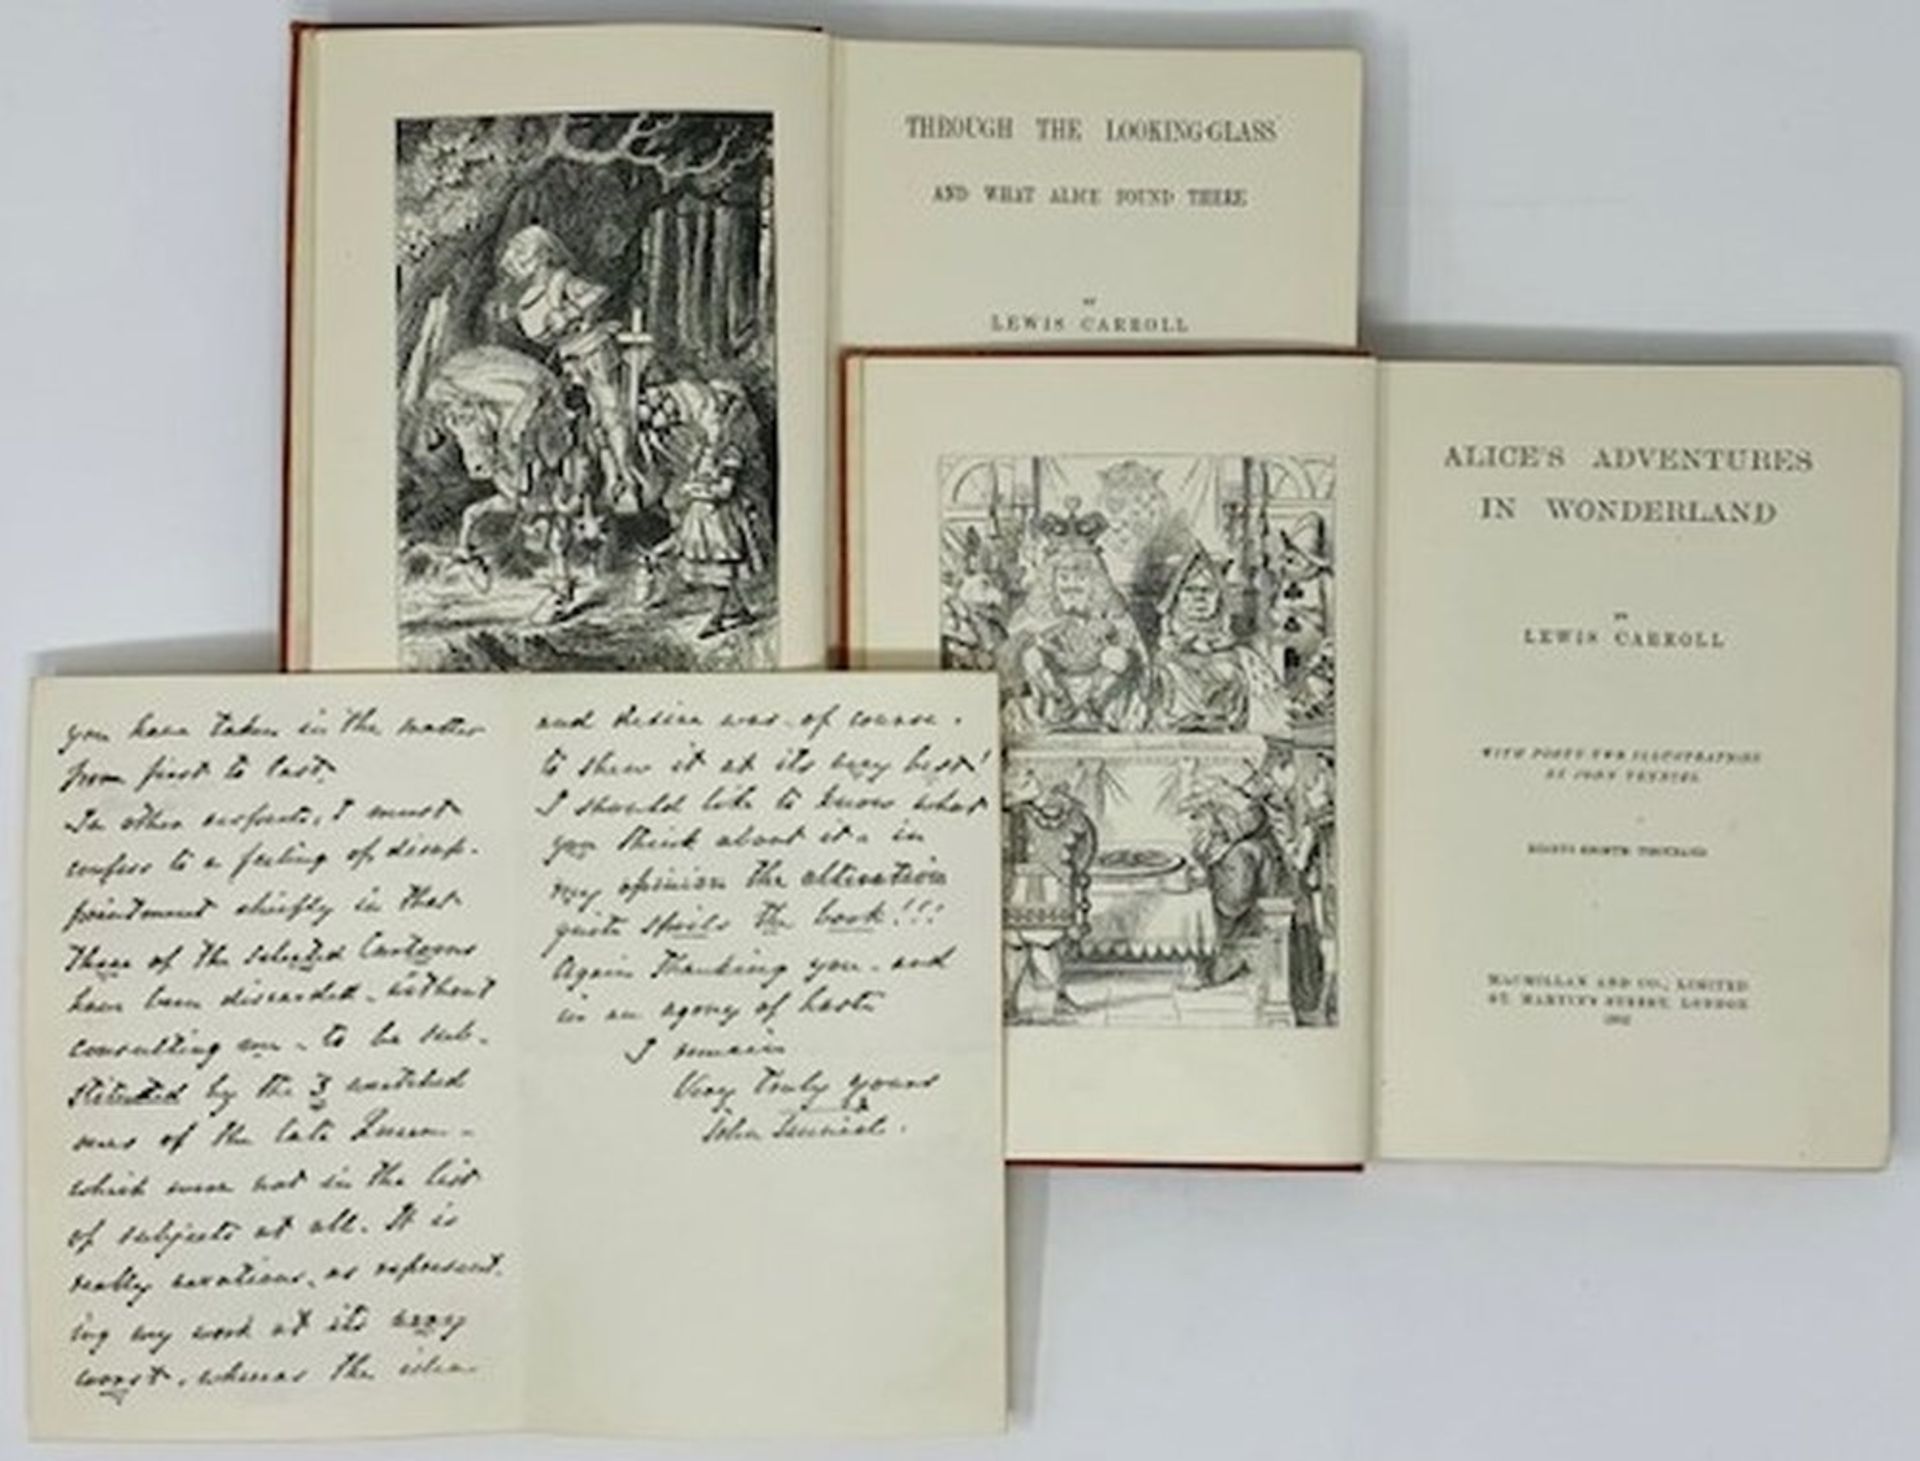 THROUGH THE LOOKING-GLASS
AND WHAT ALICE FOUND THERE
BY
LEWIS CARROLL
ALICE'S ADVENTURES
IN WONDERLAND
BY
LEWIS CARROLL
WITH FORTY-TWO ILLUSTRATIONS
BY JOHN TENNIEL
EIGHTY-EIGHTH THOUSAND
MACMILLAN AND CO., LIMITED
ST. MARTIN'S STREET, LONDON
you have taken in the matter
from first to last.
In other respects, I must
confess to a feeling of disap-
pointment chiefly in that
three of the selected Cartoons
have been discarded - without
consulting me - to be sub-
stituted by the 3 wretched
ones of the late Queen -
which were not in the list
of subjects at all. It is
really vexatious, as represent-
ing my work at its very
worst, whereas the idea
and desire was - of course -
to shew it at its very best!
I should like to know what
you think about it - in
my opinion the alteration
quite spoils the book!!!
Again thanking you - and
in an agony of haste
I remain
Very truly yours
John Tenniel.